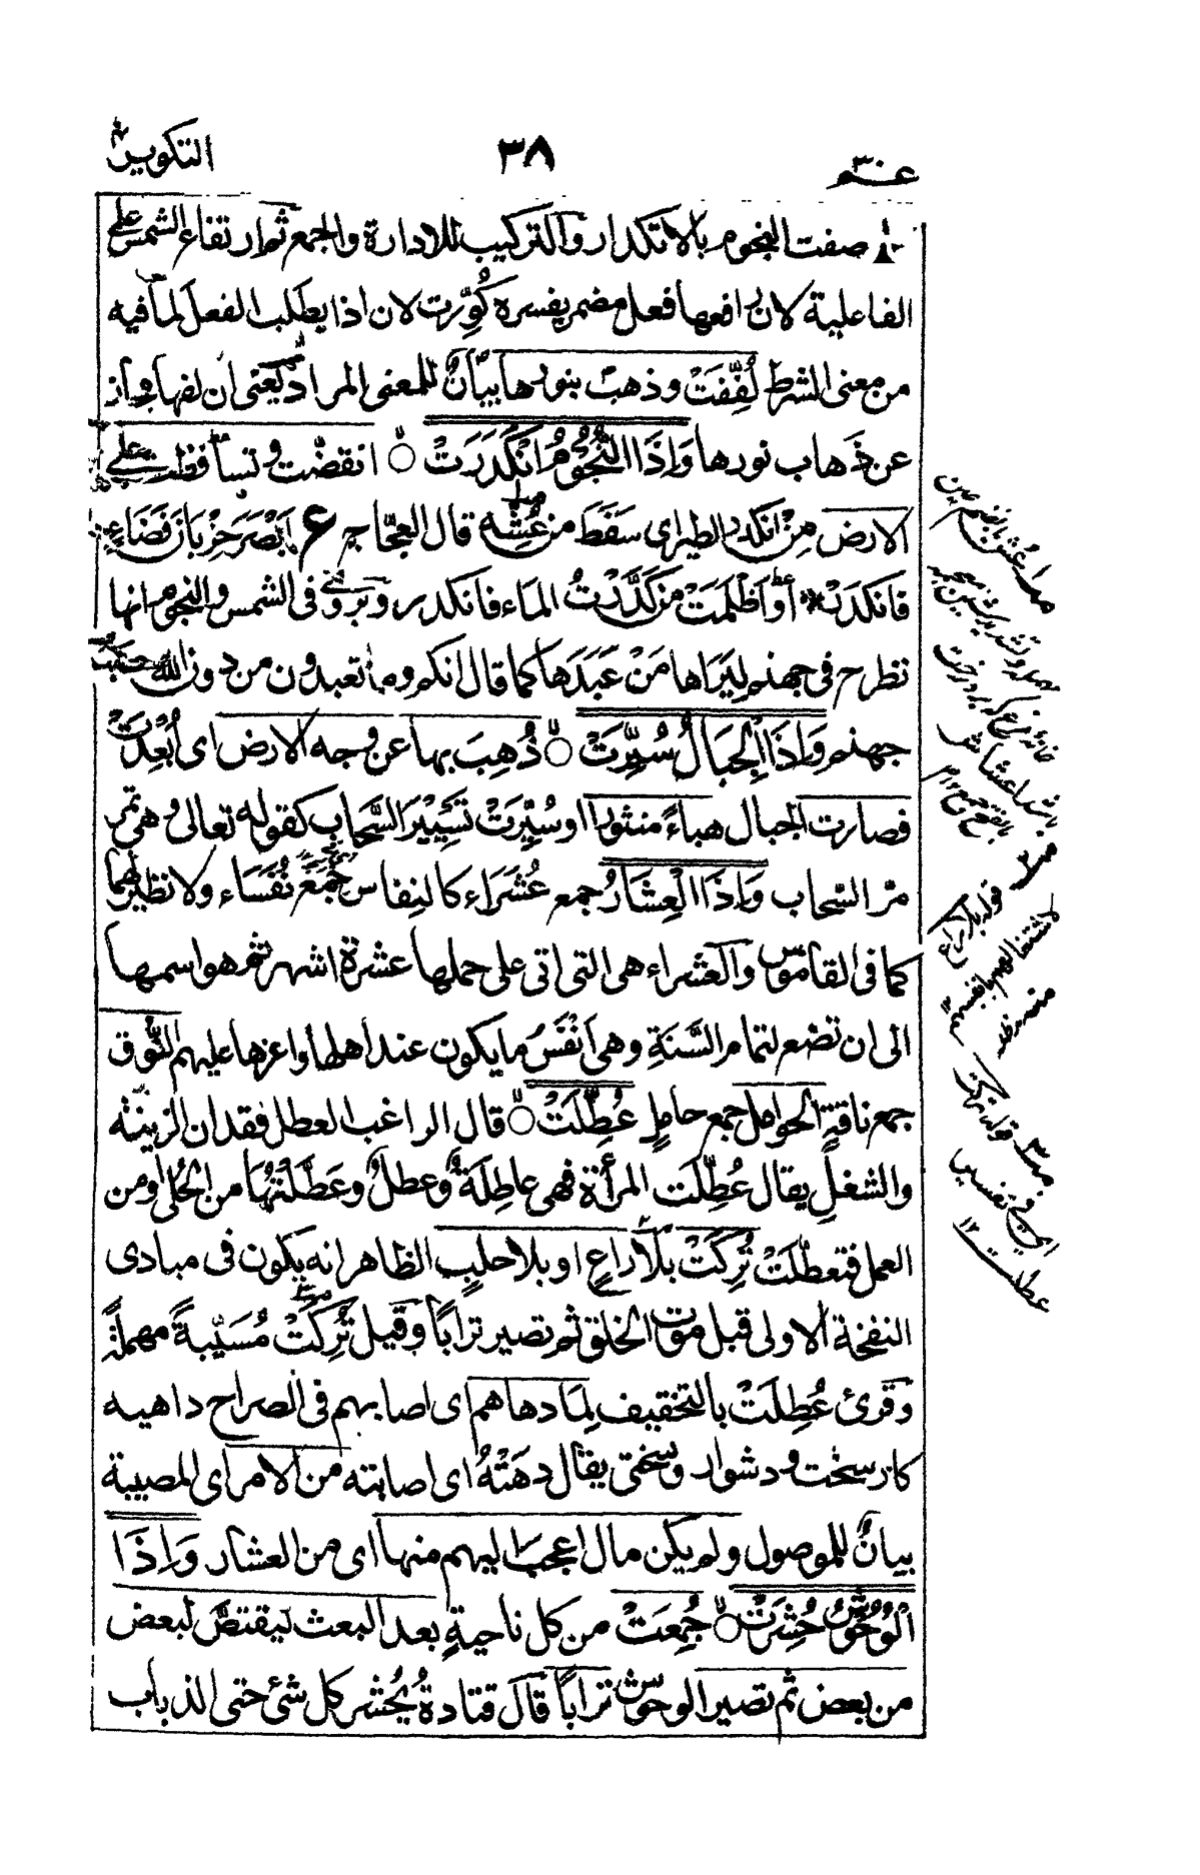 عم ٣٠
٣٨
التكوير
صفت النجوم بالانكدار والتركيب للادارة والجمع ثم ارتفاع الشمس على
الفاعلية لان رافعها فعل مضمر يفسره كُوِّرت لان اذا يطلب الفعل لما فيه
من معنى الشرط لُفِّفَتْ وذهب بنورها بيانٌ للمعنى المراد يعنى ان لفها مجاز
عن ذهاب نورها وَاِذَا النُّجُوْمُ انْكَدَرَتْ ○ انقضّت وتساقطت على
الارض مِنْ انكدر الطير اى سقَطَ من عُشِّه قال العجّاج ع اَبْصَرَ خِرْبَانَ فَضَاءٍ
فَانكدَرْ * أو اَظْلَمَتْ من كَدَّرْتُ الماء فانكدر و تروى فى الشمس والنجوم انها
تطرح فى جهنم لِيَرَاها مَنْ عَبَدَهَا كما قال انكم وما تعبدون من دون الله حصب
جهنم وَاِذَا الْجِبَالُ سُيِّرَتْ ○ ذُهِبَ بها عن وجه الارض اى اُبْعِدَتْ
فصارت الجبال هباءً منثورا او سُيِّرَتْ تَسْيِيْرَ السَّحَابِ كقوله تعالى وهى تمر
مرّ السّحاب وَاِذَا الْعِشَارُ جمع عُشَرَاء كالنِفاس جَمْعُ نُفَسَاء ولا نظير لهما
كما فى القاموس والعشراء هى التى اتى على حملها عشرة اشهر ثم هو اسمها
الى ان تضع لتمام السَّنَةِ وهى اَنْفَسُ ما يكون عند اهلها واعزها عليهم النُّوق
جمع ناقةٍ الحوامل جمع حاملٍ عُطِّلَتْ ○ قال الراغب العطل فقدان الزينة
والشغلِ يقال عُطِّلَت المرأة فهى عاطِلَةٌ وعطلٌ وعَطَّلْتُهَا من الحُلى ومن
العمل فتعطّلَتْ تُرِكَتْ بلا راعٍ او بلا حلبٍ الظاهر انه يكون فى مبادى
النفخة الاولى قبل موت الخلق ثم تصير ترابًا وقيل تُرِكَتْ مُسَيَّبةً مهملةً
وقرئ عُطِلَتْ بالتخفيف لِمَا دهاهم اى اصابهم فى الصراح داهيه
كار سخت ودشوار وسختى يقال دهَتْهُ اى اصابته من الامر اى المصيبة
بيانٌ للموصول ولم يكن مال اعجبَ اليهم منها اى من العشار وَاِذَا
الْوُحُوْشُ حُشِرَتْ ○ جُمِعَتْ من كل ناحيةٍ بعد البعث ليقتصّ لبعض
من بعض ثم تصير الوحوش ترابًا قال قتادةُ يُحْشر كل شئ حتى الذباب
قوله بلا راع
لاشتغالهم بانفسهم
قوله تركت
اى فى تفسير
عطلت ١٢